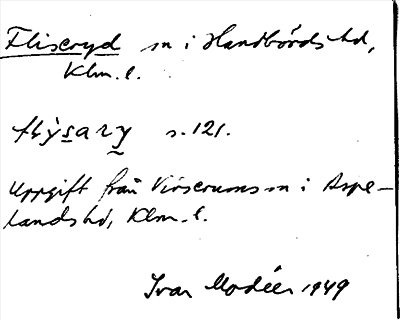 Fliseryd sn i Handbörds hd,
Klm. l.
s. 121.
Uppgift från Virserums sn i Aspe-
lands hd, Klm. l.
Ivar Modéer 1949